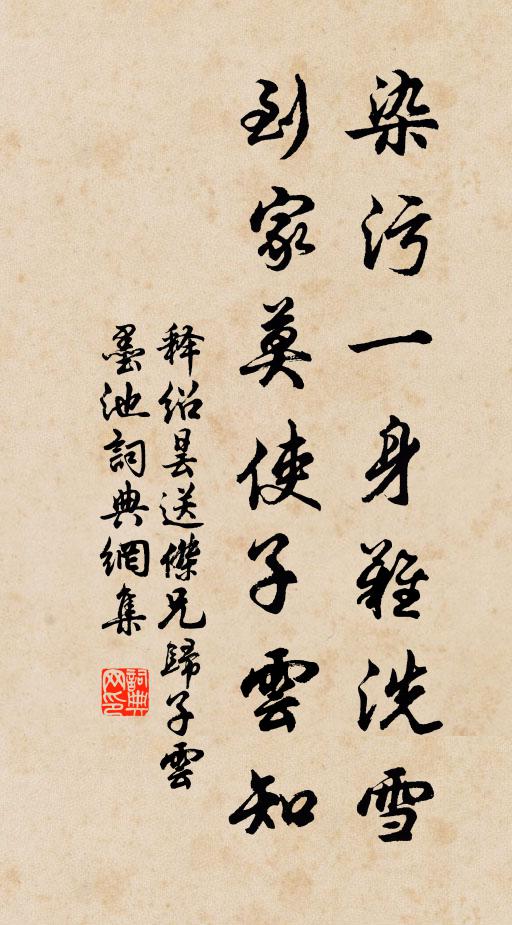 染污一身難洗雪
到家莫使子雲知
释紹曇送傑兄歸子雲
墨池詞典網集
詞典
网印